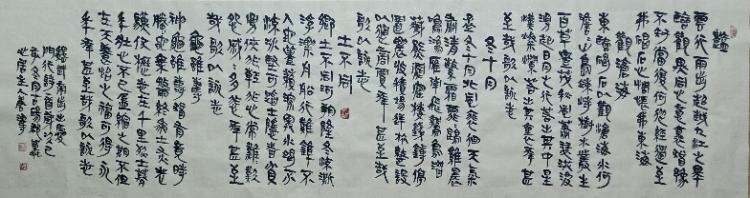 艷
雲行雨步超越九江之皋
臨觀異同心意懷猶豫
不知當復何從經過至
我碣石心惆悵我東海
觀滄海
東臨碣石以觀滄海水何
澹澹山島竦峙樹木叢生
百草豐茂秋風蕭瑟洪波
湧起日月之行若出其中星
漢燦爛若出其裏幸甚
至哉歌以詠志
冬十月
孟冬十月北風徘徊天氣
肅清繁霜霏霏鵾雞晨
鳴鴻雁南飛鷙鳥潛
藏熊羆窟棲錢鎛停
置農收積場逆旅整設
以通賈商幸甚至哉
歌以詠志
土不同
鄉土不同河朔隆冬流澌
浮漂舟船行難錐不
入地蘴藾深奧水竭不
流冰堅可蹈士隱者貧
勇俠輕非心常歎怨
戚戚多悲幸甚至
哉歌以詠志
龜雖壽
神龜雖壽猶有竟時
騰蛇乘霧終為土灰老
驥伏櫪志在千里烈士暮
年壯心不已盈縮之期不但
在天養怡之福可得永
年幸甚至哉歌以詠志